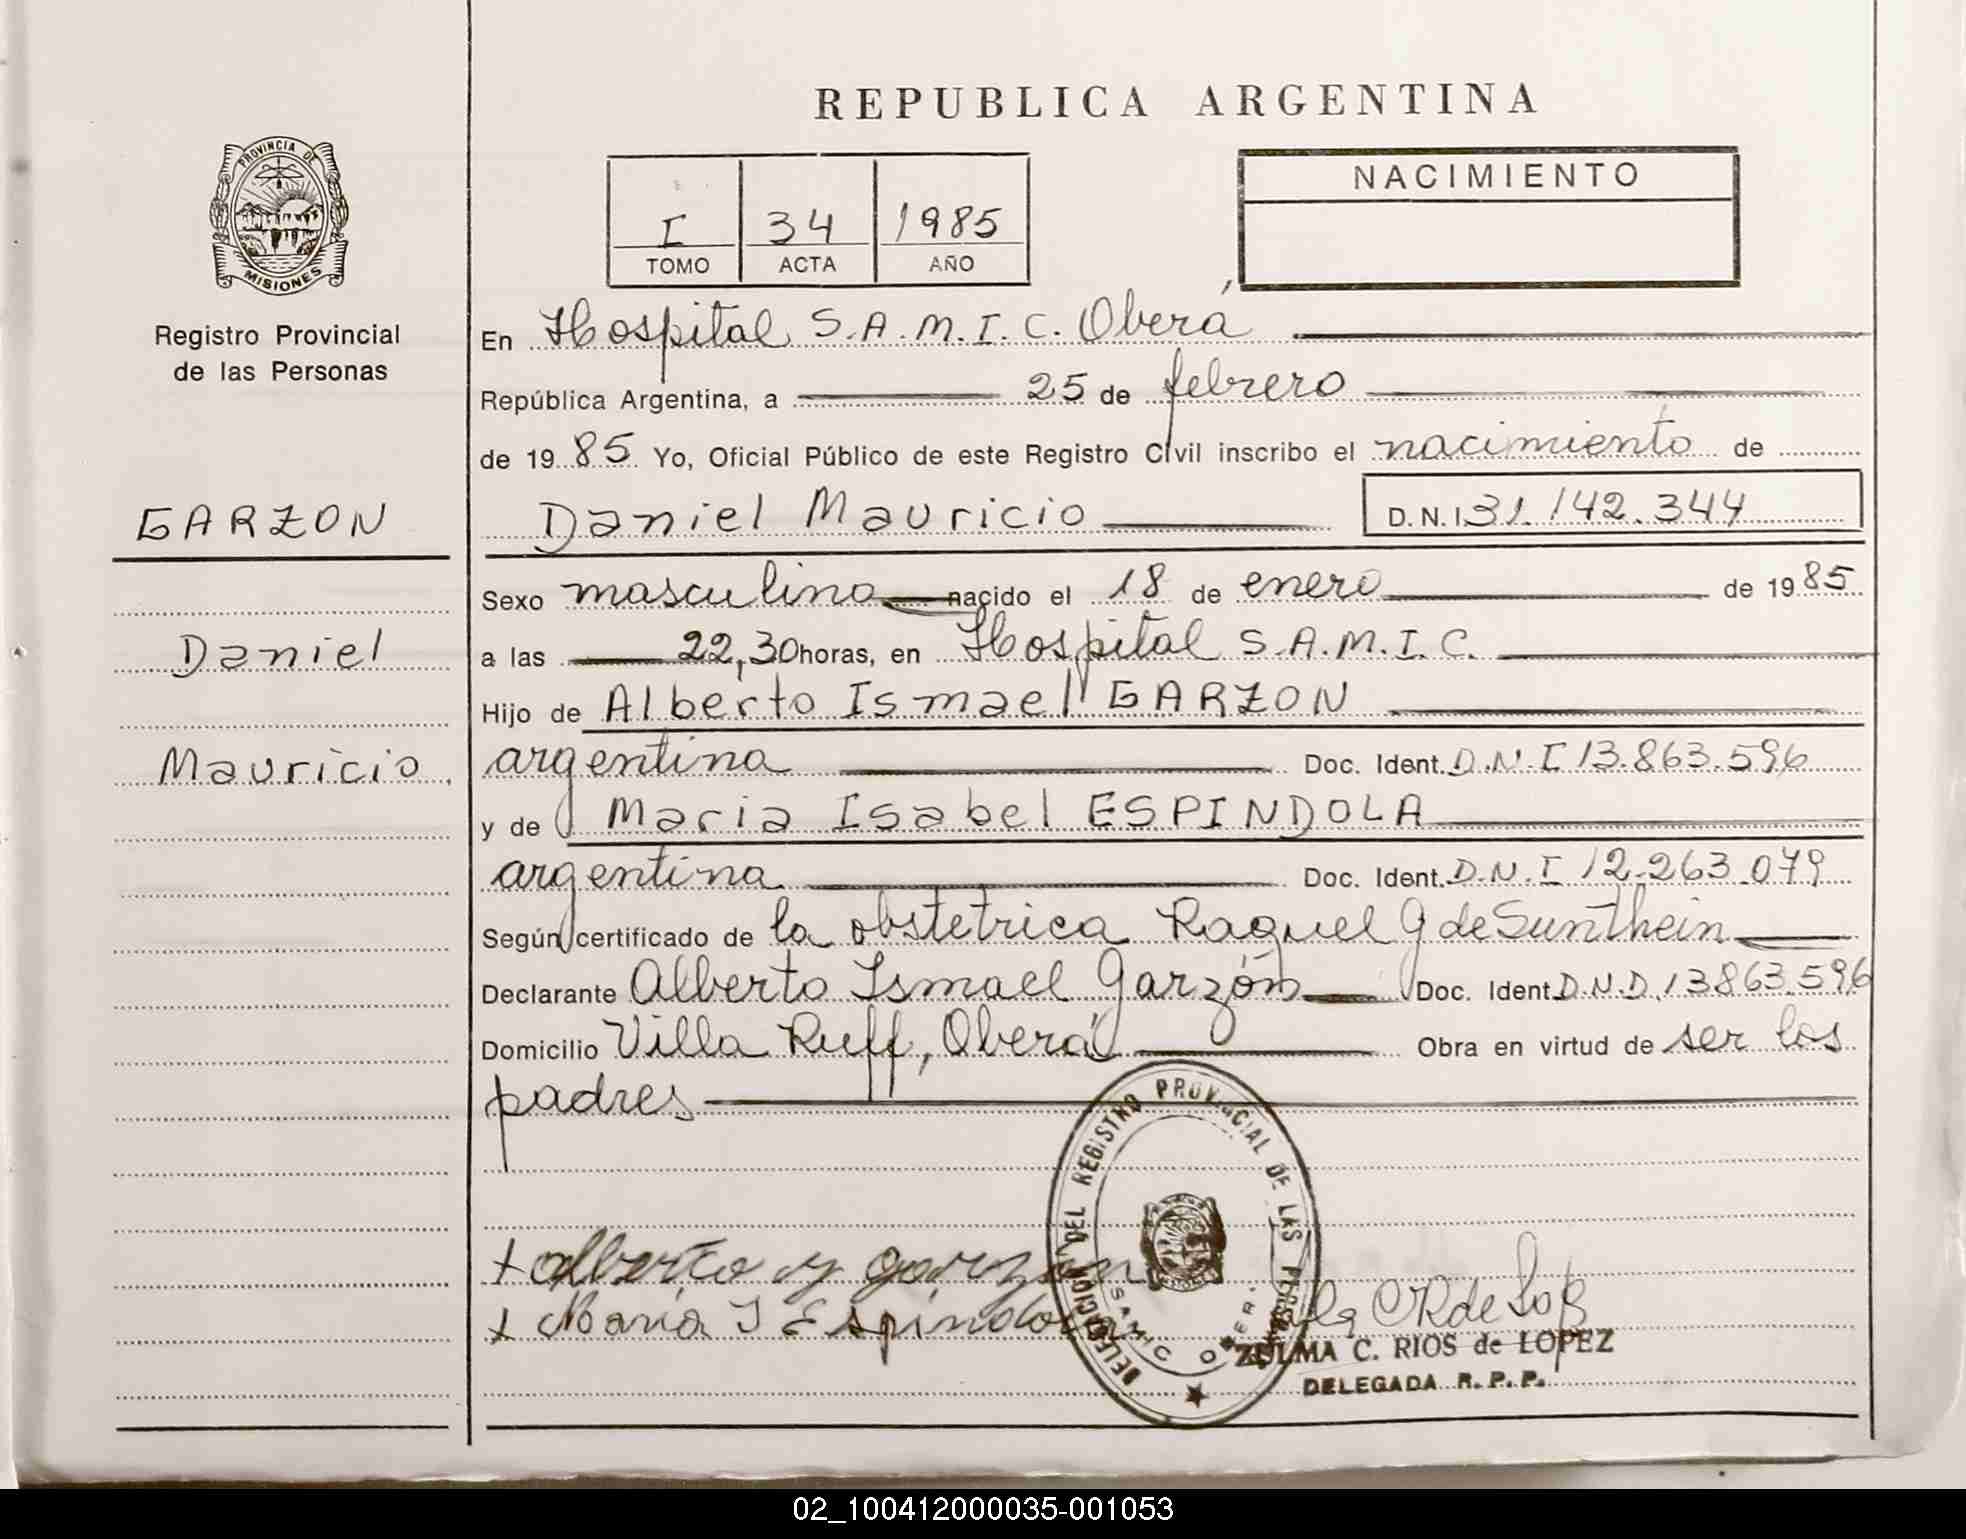 REPUBLICA ARGENTINA
PROVINCIA DE MISIONES
Registro Provincial
de las Personas
I 34 1985
TOMO ACTA AÑO
NACIMIENTO
En Hospital S.A.M.I.C. Oberá
República Argentina, a 25 de febrero
de 1985 Yo, Oficial Público de este Registro Civil inscribo el nacimiento de
GARZON
Daniel Mauricio D.N.I. 31.142.344
Sexo masculino nacido el 18 de enero de 1985
Daniel
a las 22,30 horas, en Hospital S.A.M.I.C.
Hijo de Alberto Ismael GARZON
Mauricio
argentina Doc. Ident. D.N.I 13.863.596
y de Maria Isabel ESPINDOLA
argentina Doc. Ident. D.N.I 12.263.079
Según certificado de la obstetrica Raquel G de Sunthein
Declarante Alberto Ismael Garzón Doc. Ident D.N.D. 13863.596
Domicilio Villa Ruff, Oberá Obra en virtud de ser los
padres
DELEGACION DEL REGISTRO PROVINCIAL DE LAS PERSONAS
SAMIC OBERA
+ alberto y garzon
+ Maria I Espindola
ZULMA C. RIOS de LOPEZ
DELEGADA R. P. P.
02_100412000035-001053